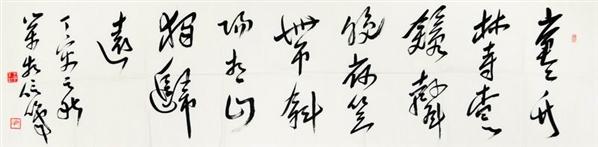 蒼々竹
林寺杳々
鐘聲
晚荷笠
帶斜
陽青山
獨歸
遠
丁亥之秋
信筆